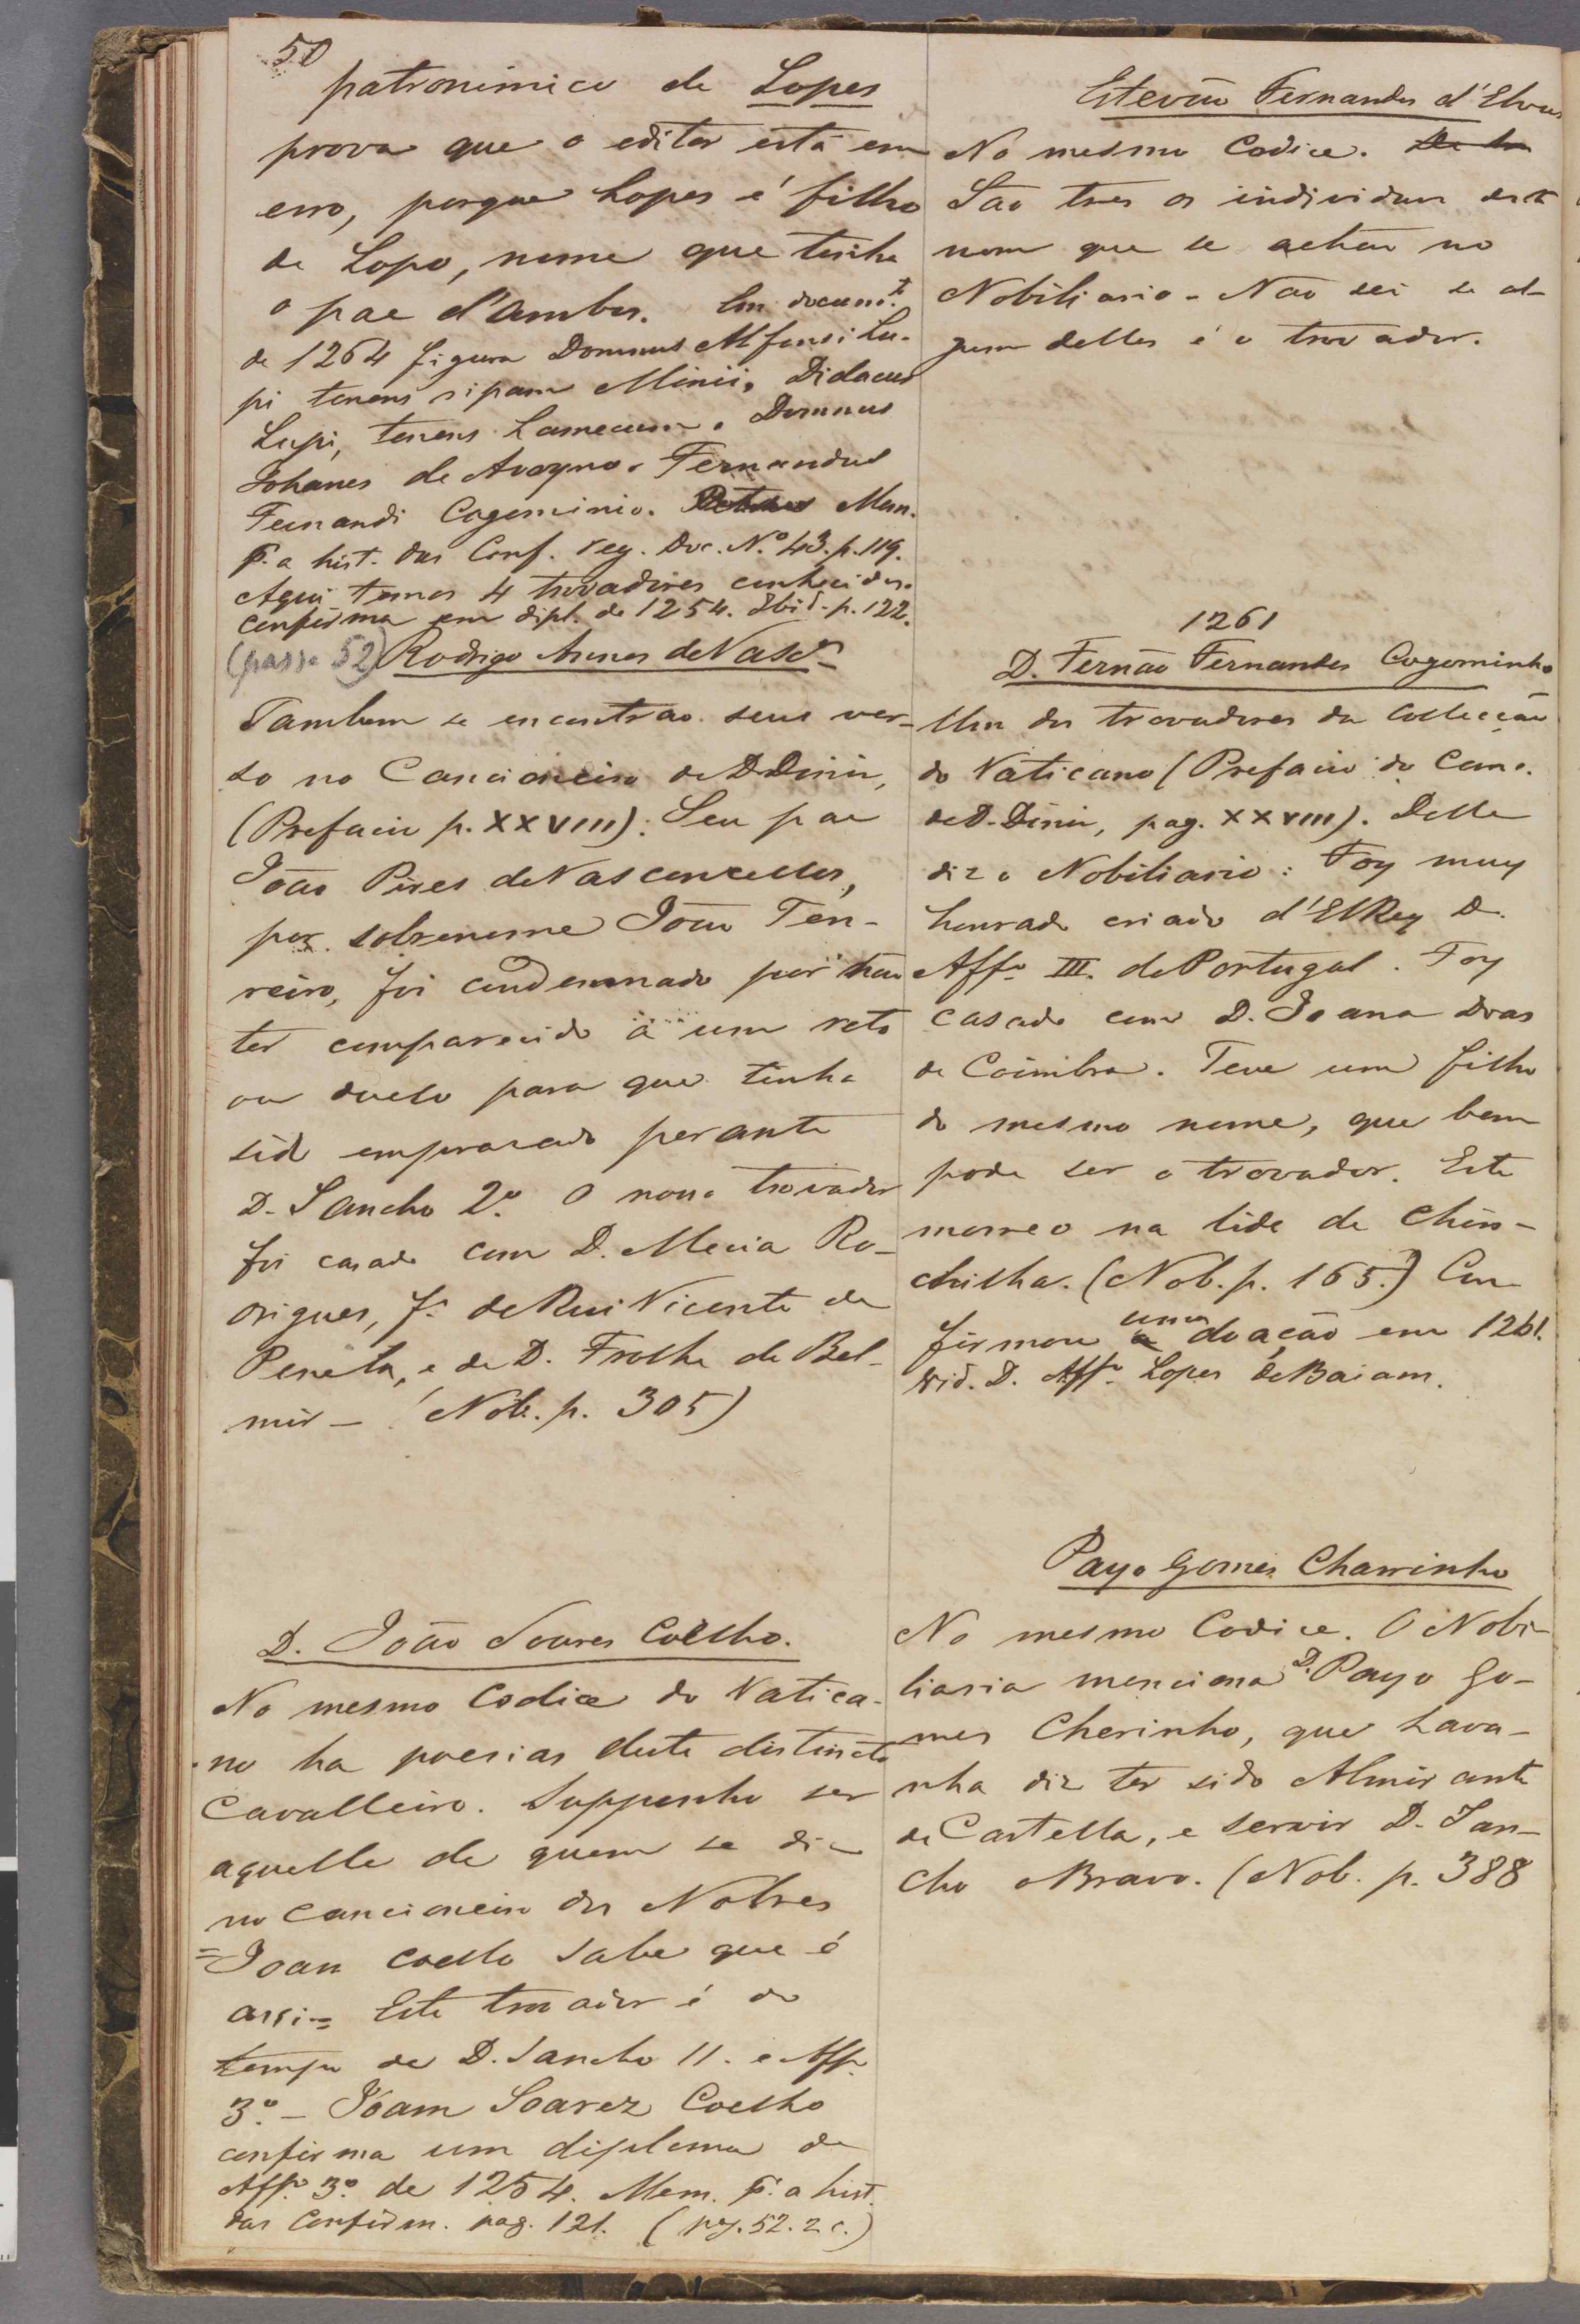 50
patronimico de Lopes
prova que o editor está em
erro, porque Lopes é filho
de Lopo, nome que tinha
o pae d'ambos. Em docum.to
de 1264 figura Domnus Alfonsi Lu-
pi tenens ripam Minii, Didacus
Lupi, tenens Lamecum. Domnus
Johanes de Avoyno. Fernandus
Fernandi Cogominio. Mem.
p.a a hist. das Conf. reg. Doc. N.o 43. p. 119.
Aqui temos 4 trovadores conhecidos.
confirma em dipl. de 1254. Ibid. p. 122.
(passe 52) Rodrigo Annes de Vasc.os
Tambem se encontrão seus ver-
so no Cancioneiro de D. Diniz,
(Prefacio p. XXVIII). Seu pae
João Pires de Vasconcellos,
por sobrenome João Ten-
reiro, foi condemnado por não
ter comparecido a um reto
ou duelo para que tinha
sido emprazado perante
D. Sancho 2.o O nosso trovador
foi casado com D. Mecia Ro-
drigues, f.a de Rui Vicente de
Penela, e de D. Froilhe de Bel-
mir - (Nob. p. 305)
D. João Soares Coelho.
No mesmo Codice do Vatica-
no ha poesias deste distincto
Cavalleiro. Supponho ser
aquelle de quem se diz
no Cancioneiro dos Nobres
=Joan Coello sabe que é
assi= Este trovador é do
tempo de D. Sancho II. e Aff.o
3.o - Joam Soarez Coelho
confirma um diploma de
Aff.o 3.o de 1254. Mem. p.a a hist.
das Confirm. pag. 121. (pag. 52. 2 c.)
Estevão Fernandes d'Elvas
No mesmo Codice.
São tres os individuos deste
nome que se achão no
Nobiliario - Não sei se al-
gum delles é o trovador.
1261
D. Fernão Fernandes Cogominho
Um dos trovadores da Collecção
do Vaticano (Prefacio do Canc.
de D. Diniz, pag. XXVIII). Delle
diz o Nobiliario: Foy muy
honrado criado d'ElRey D.
Aff.o III. de Portugal. Foy
casado com D. Joana Dias
de Coimbra. Teve um filho
do mesmo nome, que bem
pode ser o trovador. Este
morreo na lide de Chin-
chilha. (Nob. p. 165.) Con
firmou uma doação em 1261.
vid. D. Aff.o Lopes de Baiam.
Payo Gomes Charrinho
No mesmo Codice. O Nobi-
liario menciona D. Payo Go-
mes Cherinho, que Lava-
nha diz ter sido Almirante
de Castella, e servir D. San-
cho o Bravo. (Nob. p. 388